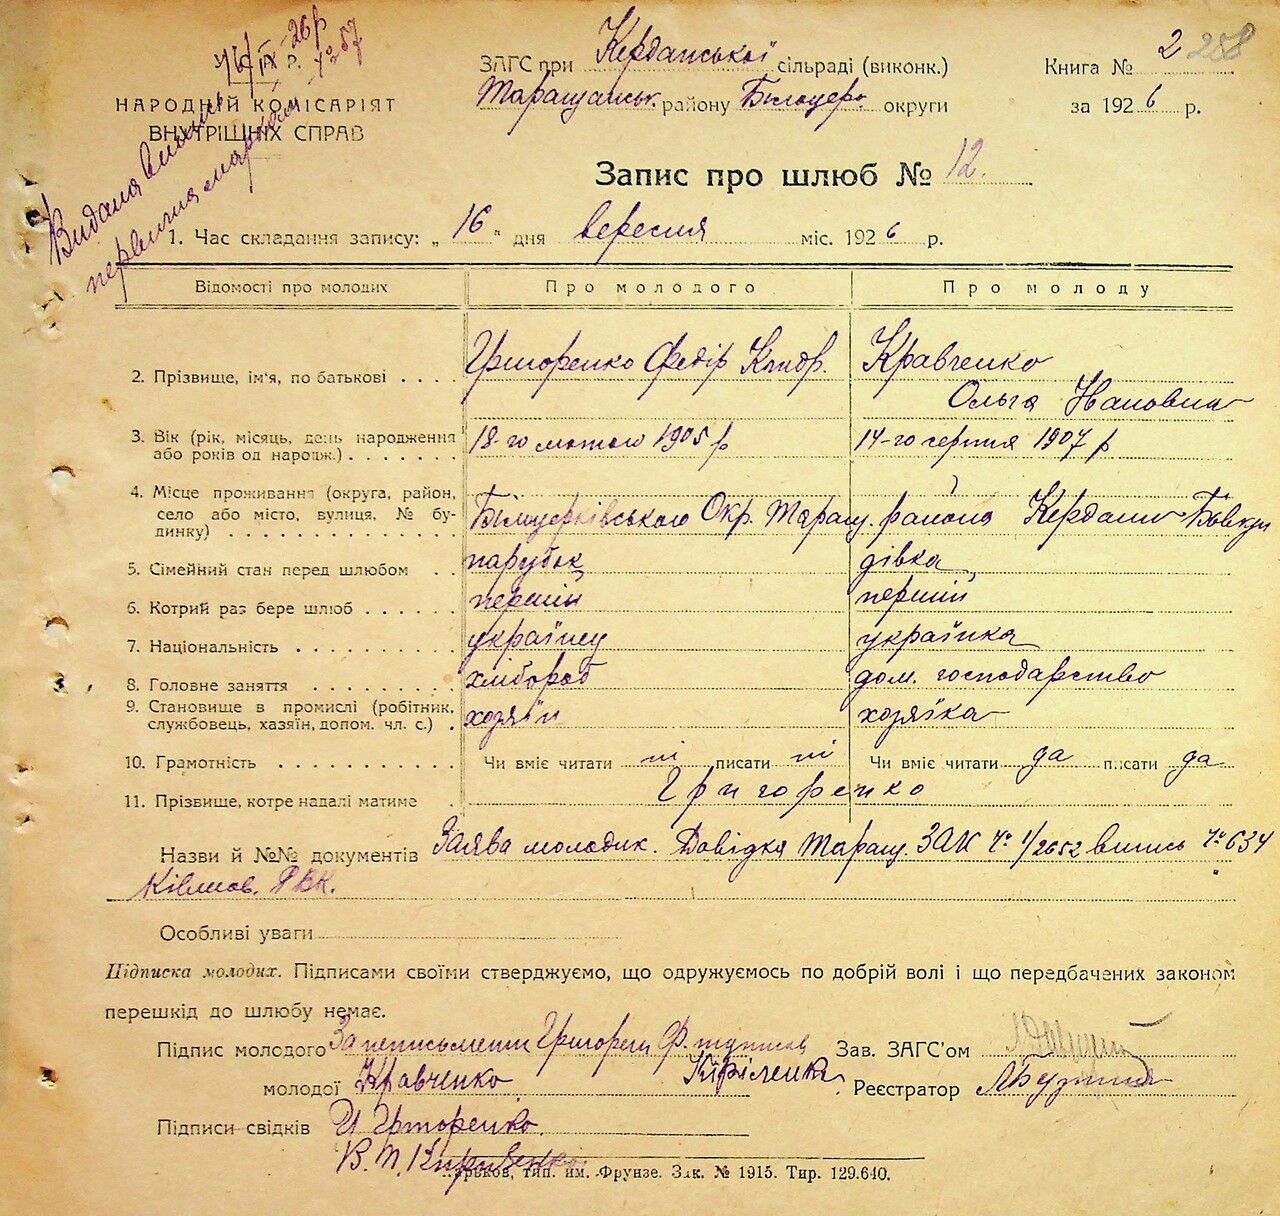 16/IX-26 р
№ 57
У. С. Р. Р.
НАРОДНІЙ КОМІСАРІЯТ
ВНУТРІШНІХ СПРАВ
Видана виписъ
ЗАГС при Керданської сільраді (виконк.)
Таращанськ. району Білоцерк округи
Книга № 2 258
за 1926 р.
Запис про шлюб № 12.
1. Час складання запису: „16" дня вересня міс. 1926 р.
Відомості про молодих Про молодого Про молоду
2. Прізвище, ім'я, по батькові Григоренко Федір Кондр. Кравченко
Ольга Івановна
3. Вік (рік, місяць, день народження 18-го лютого 1905 р 14-го серпня 1907 р
або років од народж.)
4. Місце проживання (округа, район,
село або місто, вулиця, № бу- Білоцерківського Окр. Таращ. района Кердани
динку)
5. Сімейний стан перед шлюбом парубок дівка
6. Котрий раз бере шлюб перший перший
7. Національність українец українка
8. Головне заняття хлібороб дом. господарство
9. Становище в промислі (робітник,
службовець, хазяїн, допом. чл. с.) хозяїн хозяїка
10. Грамотність Чи вміє читати ні писати ні Чи вміє читати да писати да
11. Прізвище, котре надалі матиме Григоренко
Назви й №№ документів Заява молодих. Довідка Таращ. ЗАК № 1/2652 випись № 634
РВК.
Особливі уваги
Підписка молодих. Підписами своїми стверджуємо, що одружуємось по добрій волі і що передбачених законом
перешкід до шлюбу немає.
Підпис молодого За неписьмен Григорен Ф. підписав Зав. ЗАГС'ом
молодої Кравченко Реєстратор
Підписи свідків И Григоренко
В. П.
Харьков, тип. им. Фрунзе. Зак. № 1915. Тир. 129.640.